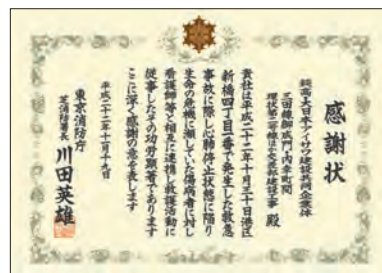 感謝状
鉄高・大日本・アイサワ建設共同企業体
三田線御成門・内幸町間
環状第二号線ほか交差部建設工事 殿
貴社は平成二十二年十月三十日港区
新橋四丁目一番で発生した救急
事故に際し心肺停止状態に陥り
生命の危機に瀕していた傷病者に対し
看護師等と相互に連携し救護活動に
従事したその功労顕著であります
ここに深く感謝の意を表します
平成二十二年十一月十九日
東京消防庁
芝消防署長 川田英雄